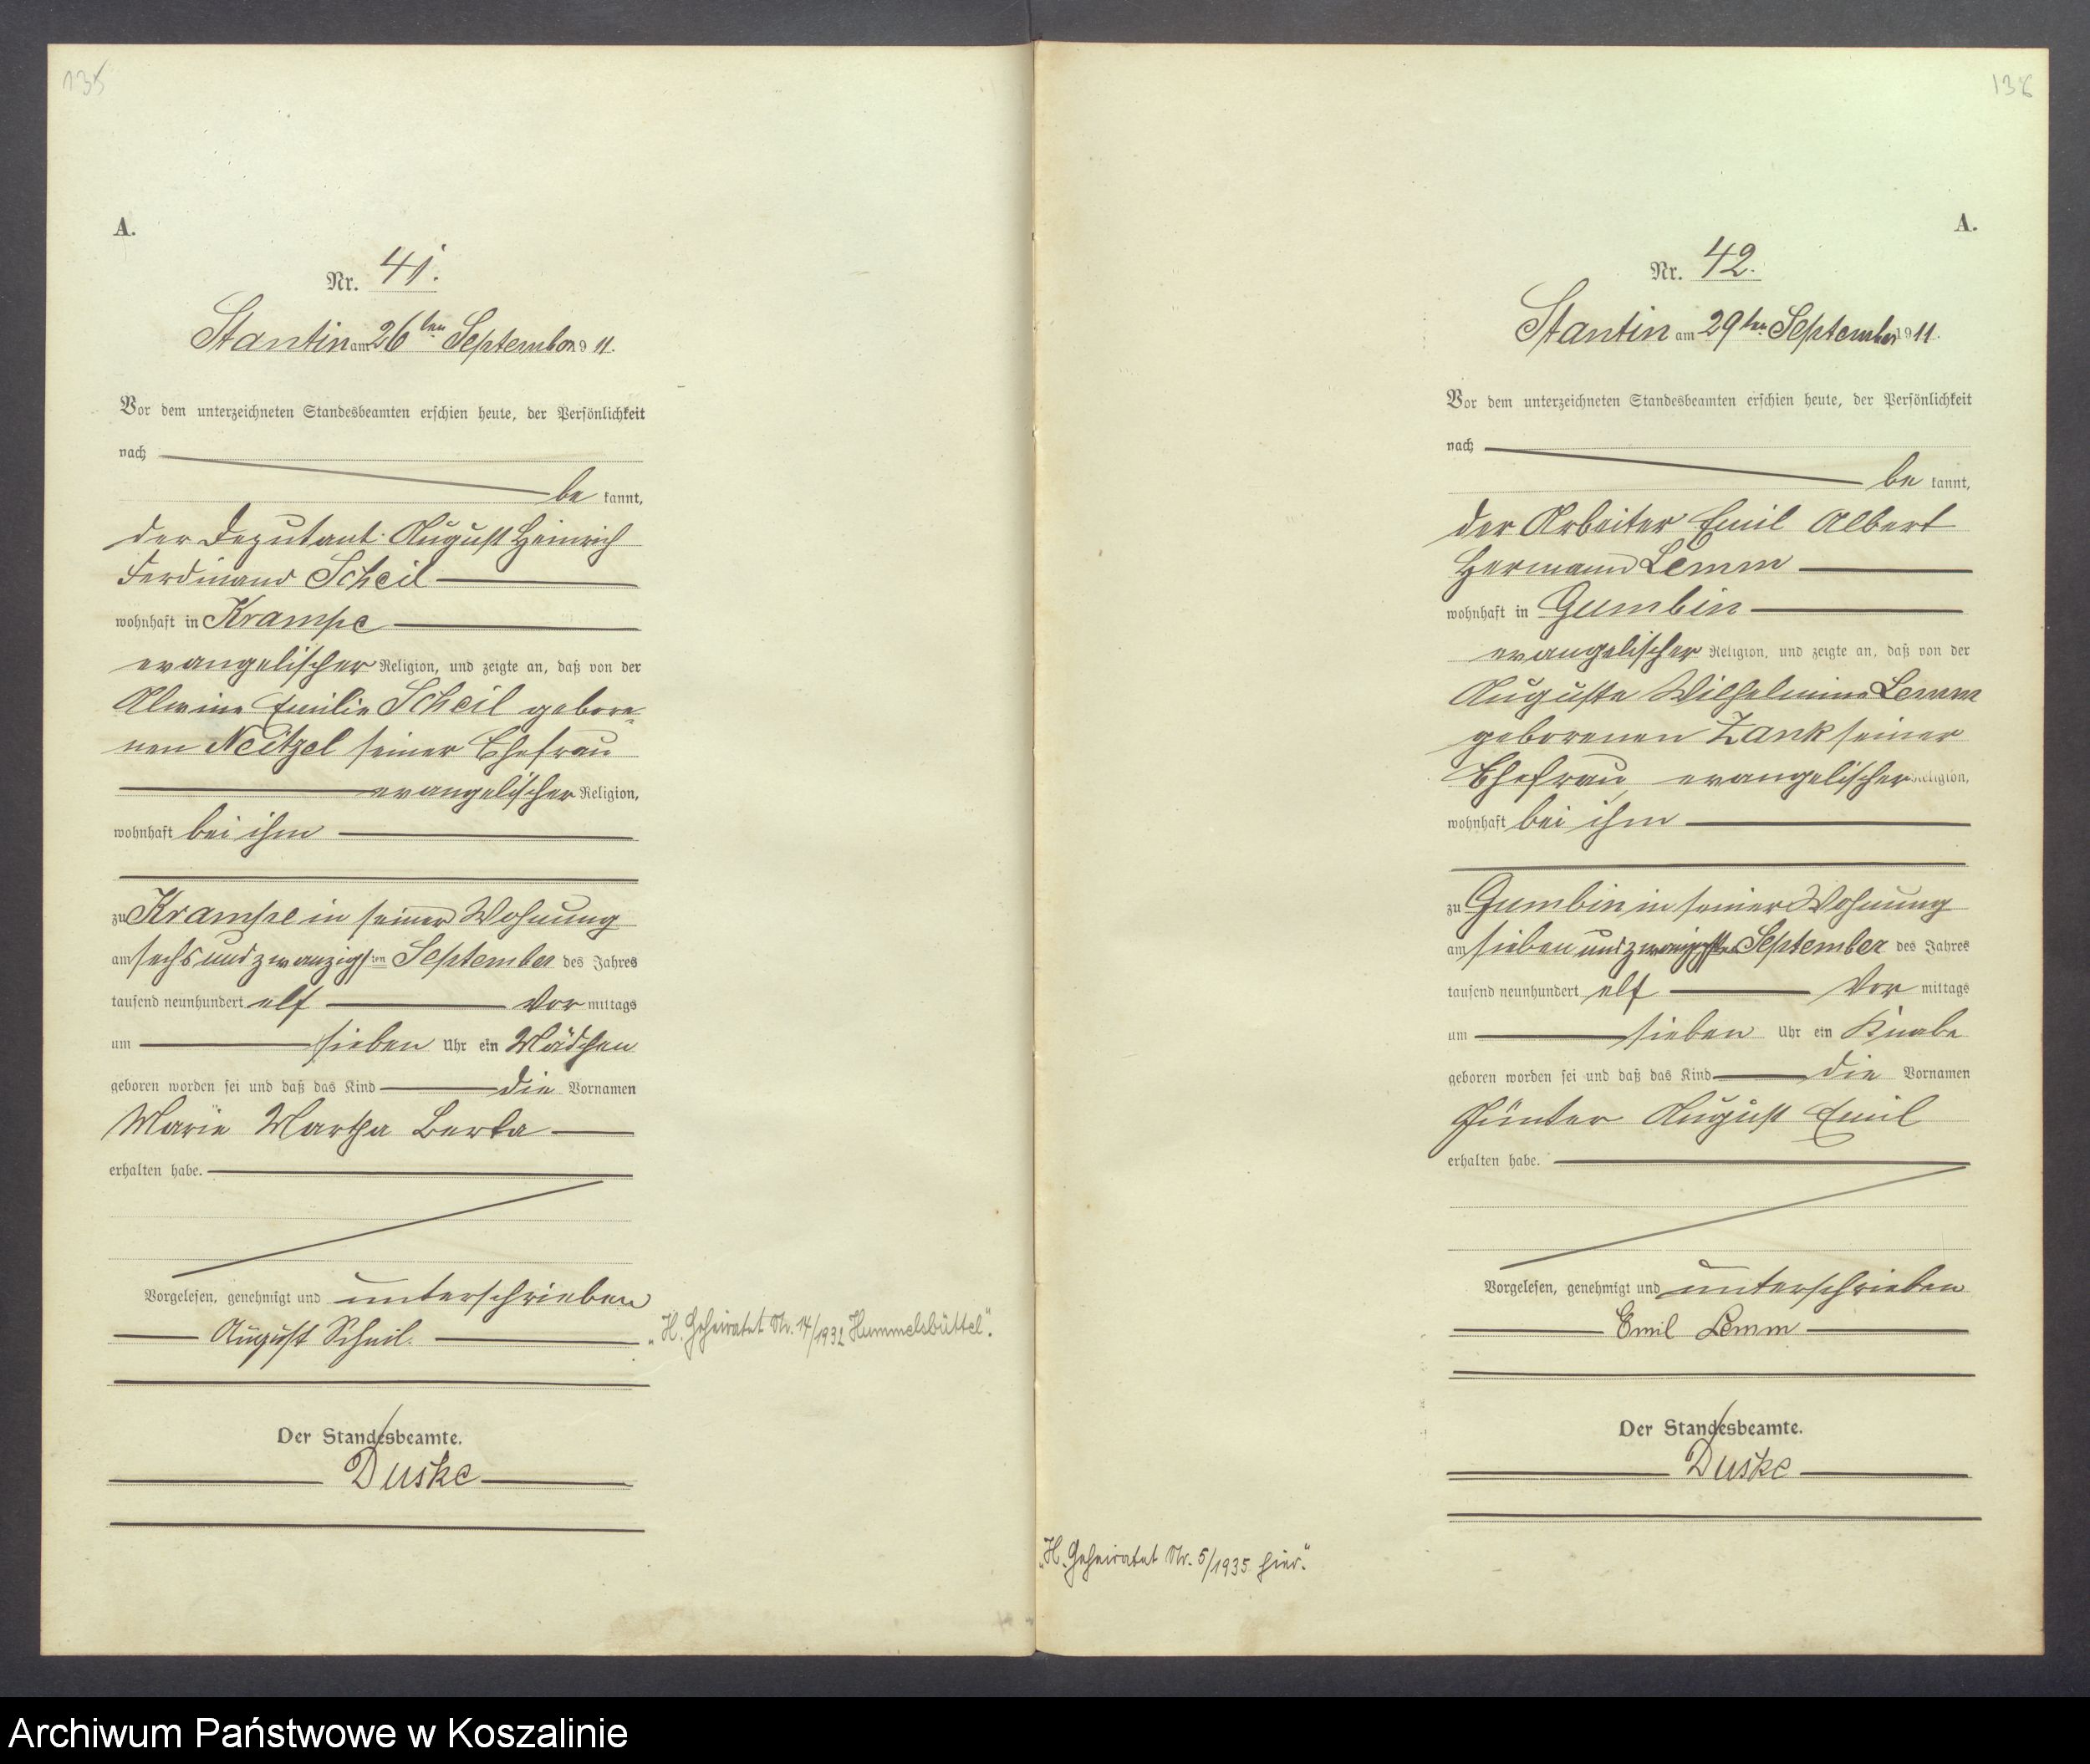 135
A.
Nr. 41.
Stantin am 26ten September 1911.
Vor dem unterzeichneten Standesbeamten erschien heute, der Persönlichkeit
nach
be kannt,
der Deputant August Heinrich
Ferdinand Scheil
wohnhaft in Krampe
evangelischer Religion, und zeigte an, daß von der
Alwine Emilie Scheil gebore-
nen Neitzel seiner Ehefrau
evangelischer Religion,
wohnhaft bei ihm
zu Krampe in seiner Wohnung
am sechs und zwanzigsten September des Jahres
tausend neunhundert elf Vor mittags
um sieben Uhr ein Mädchen
geboren worden sei und daß das Kind die Vornamen
Marie Martha Berta
erhalten habe.
Vorgelesen, genehmigt und unterschrieben
August Scheil.
„H. Geheiratet Nr. 14/1932 Hummelsbüttel“.
Der Standesbeamte.
Duske
136
A.
Nr. 42.
Stantin am 29ten September 1911.
Vor dem unterzeichneten Standesbeamten erschien heute, der Persönlichkeit
nach
be kannt,
der Arbeiter Emil Albert
Hermann Lemm
wohnhaft in Gumbin
evangelischer Religion, und zeigte an, daß von der
Auguste Wilhelmine Lemm
geborenen Zank seiner
Ehefrau, evangelischer Religion,
wohnhaft bei ihm
zu Gumbin in seiner Wohnung
am sieben und zwanzigsten September des Jahres
tausend neunhundert elf Vor mittags
um sieben Uhr ein Knabe
geboren worden sei und daß das Kind die Vornamen
Günter August Emil
erhalten habe.
Vorgelesen, genehmigt und unterschrieben
Emil Lemm
Der Standesbeamte.
Duske
„H. Geheiratet Nr. 5/1935 hier.“
Archiwum Państwowe w Koszalinie